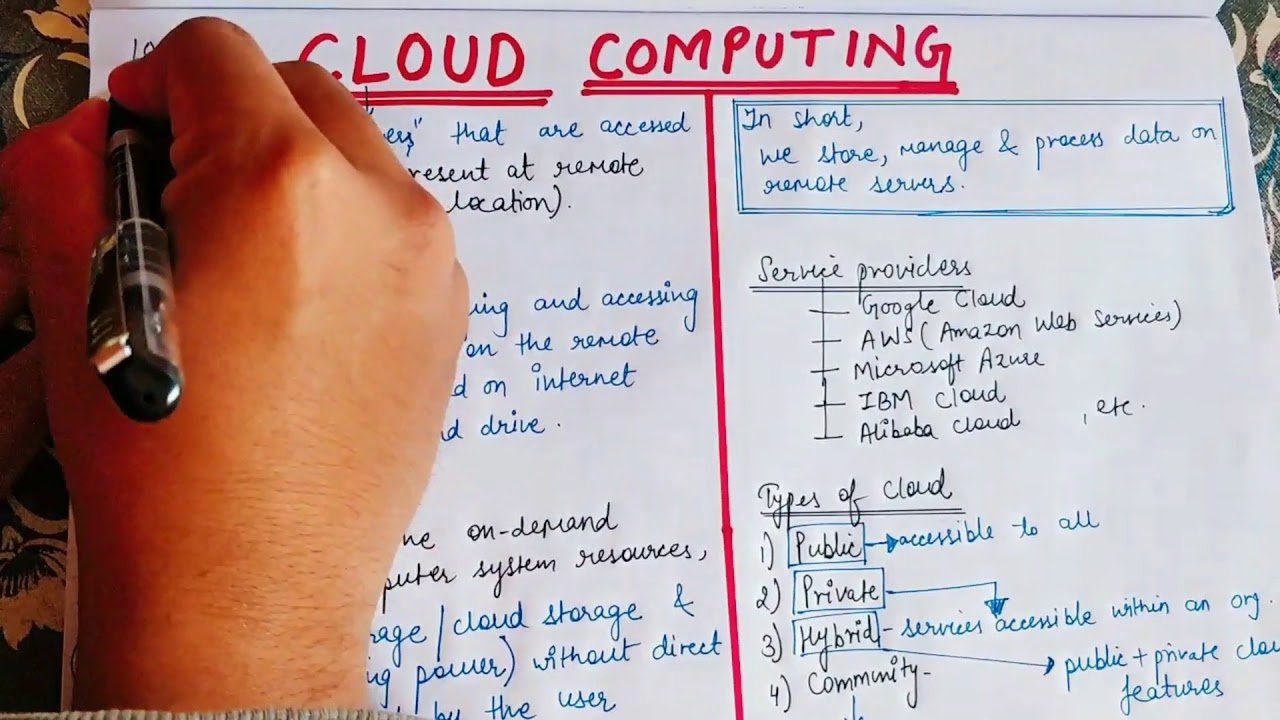 CLOUD COMPUTING
that are accessed
resent at remote
location).
ing and accessing
on the remote
d on internet
d drive.
on-demand
puter system resources,
rage / cloud storage &
ing power) without direct
by the user
In short,
we store, manage & process data on
remote servers.
Service providers
Google Cloud
AWS (Amazon Web Services)
Microsoft Azure
IBM Cloud
Alibaba Cloud , etc.
Types of Cloud
1) Public → accessible to all
2) Private
3) Hybrid - services accessible within an org.
public + private clou
features
4) Community -